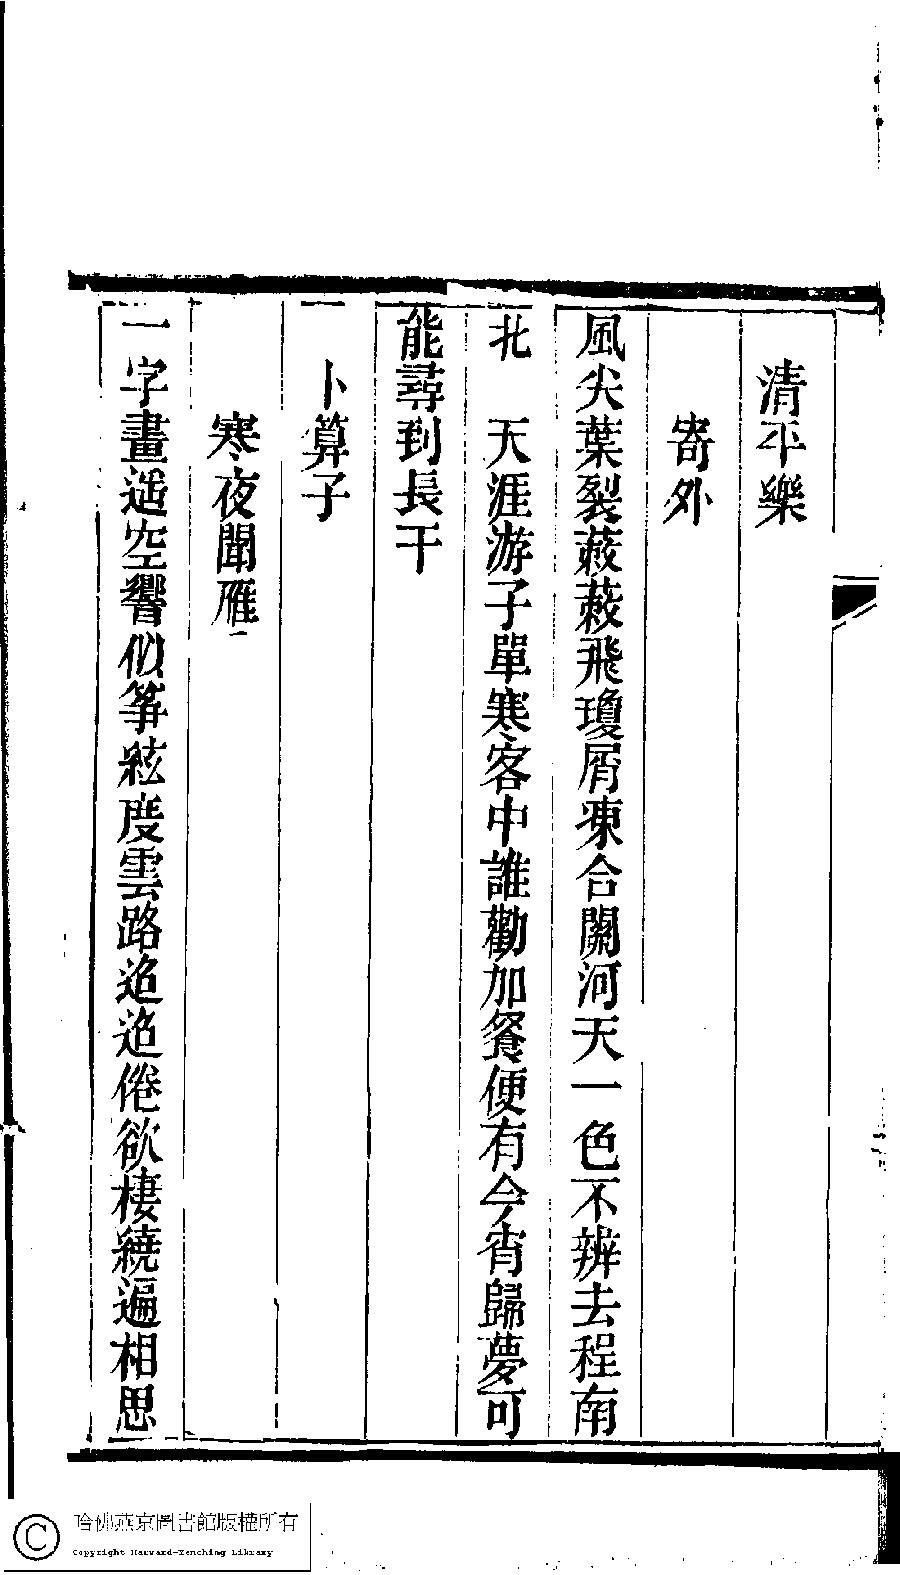 清平樂
寄外
風尖葉裂蔌蔌飛瓊屑凍合關河天一色不辨去程南
北　天涯游子單寒客中誰勸加餐便有今宵歸夢可
能尋到長干
卜算子
寒夜聞雁
一字畫遥空響似箏絃度雲路迢迢倦欲棲繞遍相思
哈佛燕京圖書館版權所有
Copyright Harvard-Yenching Library